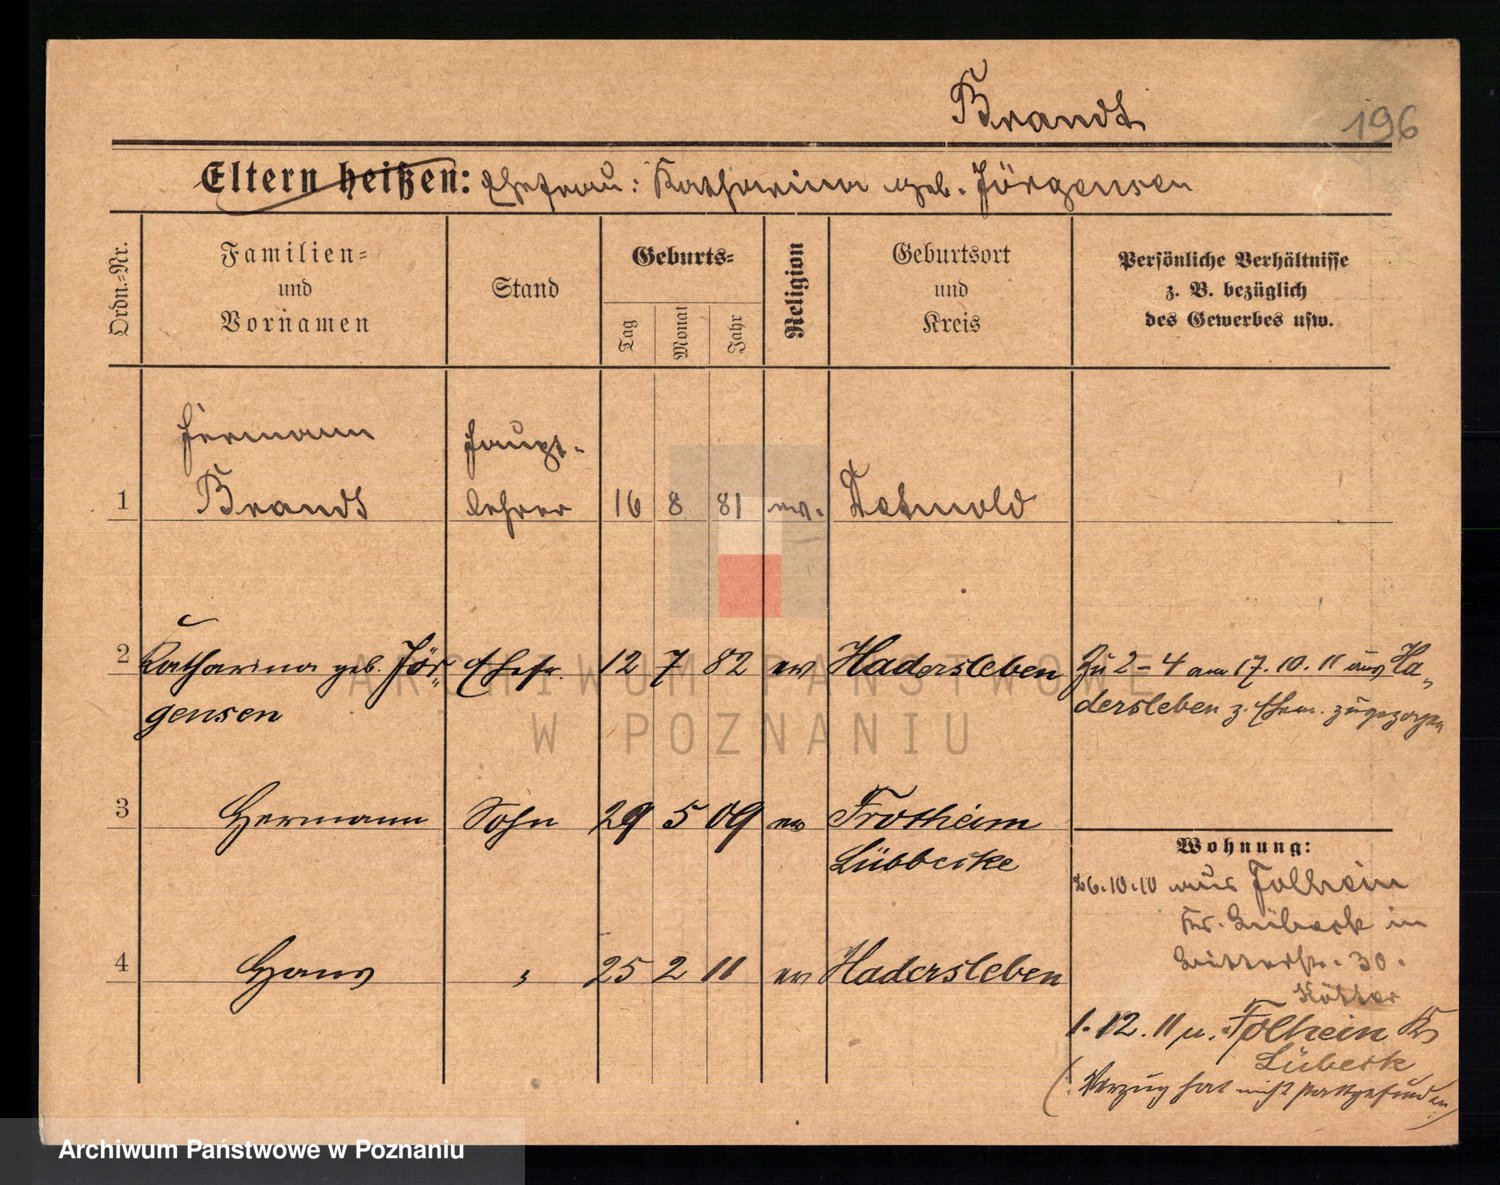 Brandt
196
Eltern heißen: Ehefrau: Katharina geb. Jörgensen
Ordn.-Nr.
Familien-
und
Vornamen
Stand
Geburts-
Tag
Monat
Jahr
Religion
Geburtsort
und
Kreis
Persönliche Verhältnisse
z. B. bezüglich
des Gewerbes usw.
Hermann Haupt-
1 Brandt lehrer 16 8 81 ev. Detmold
2 Katharina geb. Jör- Ehefr. 12 7 82 ev Hadersleben Zu 2-4 am 17.10.11 aus Ha-
gensen dersleben z. Ehem. zugezogen
3 Hermann Sohn 29 5 09 ev Frotheim
Lübbecke
Wohnung:
26.10.10 aus Folhein
Kr. Lübeck in
30.
4 Hans " 25 2 11 ev Hadersleben
1.12.11 n. Folhein Kr
Lübeck
(Verzug hat nicht stattgefunden.)
ARCHIWUM PAŃSTWOWE
W POZNANIU
Archiwum Państwowe w Poznaniu